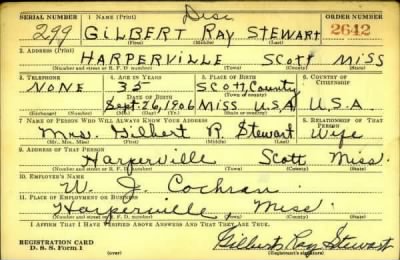 SERIAL NUMBER 1. NAME (Print) Disc ORDER NUMBER
299 GILBERT RAY STEWART 2642
(First) (Middle) (Last)
2. ADDRESS (Print)
HARPERVILLE SCOTT MISS
(Number and street or R. F. D. number) (Town) (County) (State)
3. TELEPHONE 4. AGE IN YEARS 5. PLACE OF BIRTH 6. COUNTRY OF CITIZENSHIP
NONE 35 SCOTT, County
DATE OF BIRTH (Town or county)
Sept. 26, 1906 MISS U.S.A U.S.A
(Exchange) (Number) (Mo.) (Day) (Yr.) (State or country)
7. NAME OF PERSON WHO WILL ALWAYS KNOW YOUR ADDRESS 8. RELATIONSHIP OF THAT PERSON
Mrs. Gilbert R. Stewart Wife
(Mr., Mrs., Miss) (First) (Middle) (Last)
9. ADDRESS OF THAT PERSON
Harperville Scott Miss.
(Number and street or R. F. D. number) (Town) (County) (State)
10. EMPLOYER'S NAME
W. J. Cochran
11. PLACE OF EMPLOYMENT OR BUSINESS
Harperville, Miss.
(Number and street or R. F. D. number) (Town) (County) (State)
I AFFIRM THAT I HAVE VERIFIED ABOVE ANSWERS AND THAT THEY ARE TRUE.
REGISTRATION CARD
D. S. S. Form 1 Gilbert Ray Stewart
(Registrant's signature)